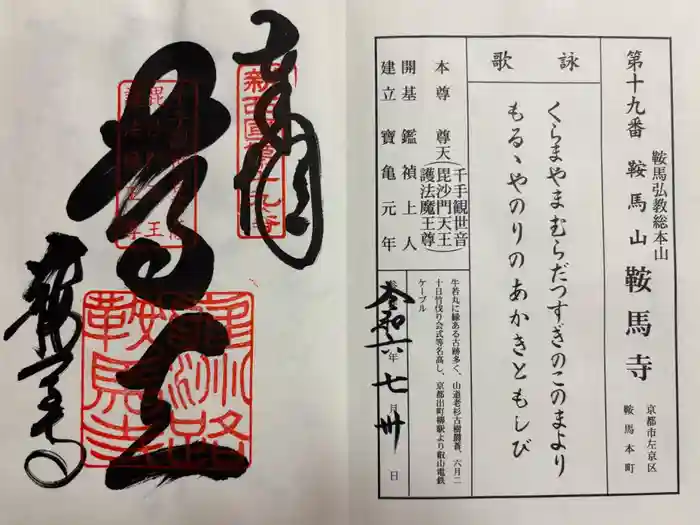 第十九番 鞍馬弘教総本山 鞍馬山 鞍馬寺 京都市左京区 鞍馬本町
詠歌
くらまやまむらだつすぎのこのまより
もるゝやのりのあかきともしび
本尊 尊天(千手観世音 毘沙門天王 護法魔王尊)
開基 鑑禎上人
建立 寶亀元年
牛若丸に縁ある古跡多く、山道老杉古樹鬱蒼、六月二
十日竹伐り会式等名高し、京都出町柳駅より叡山電鉄
ケーブル
令和六年七月卅日
奉拝
新西国第十九番
尊天
鞍馬寺